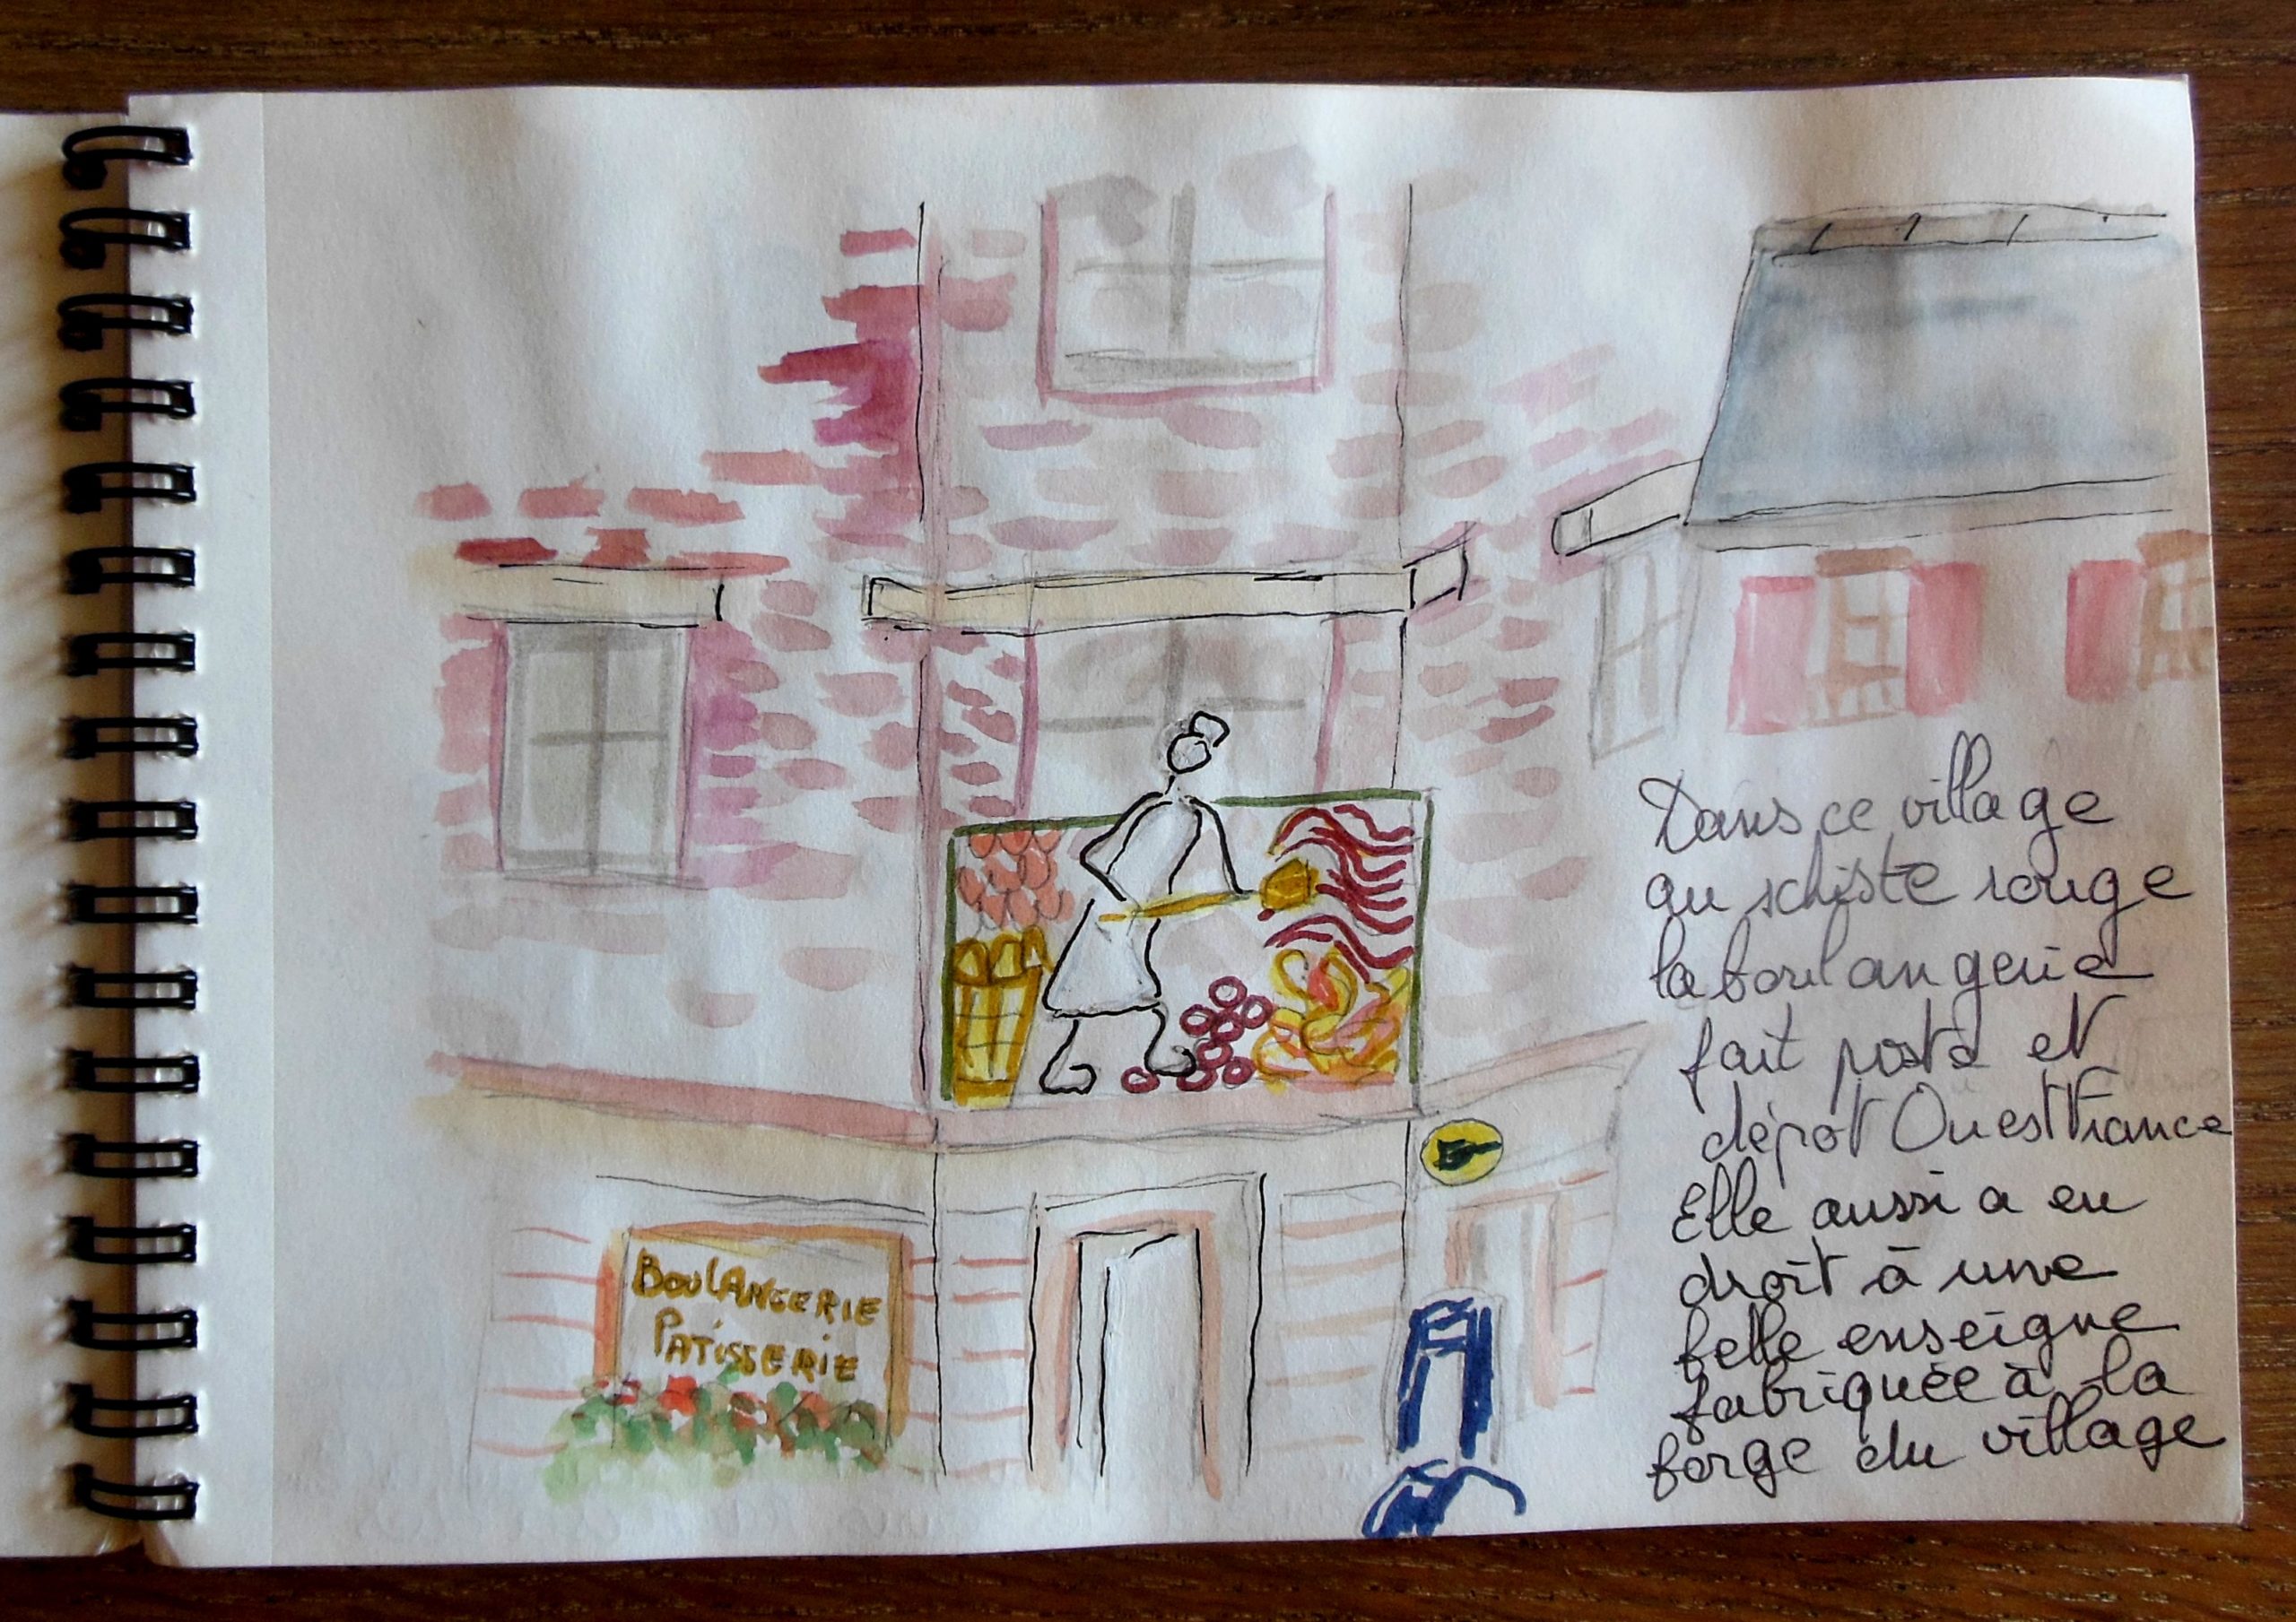 BOULANGERIE
PATISSERIE
Dans ce village
au schiste rouge
la boulangerie
fait poste et
dépôt Ouest France
Elle aussi a eu
droit à une
belle enseigne
fabriquée à la
forge du village